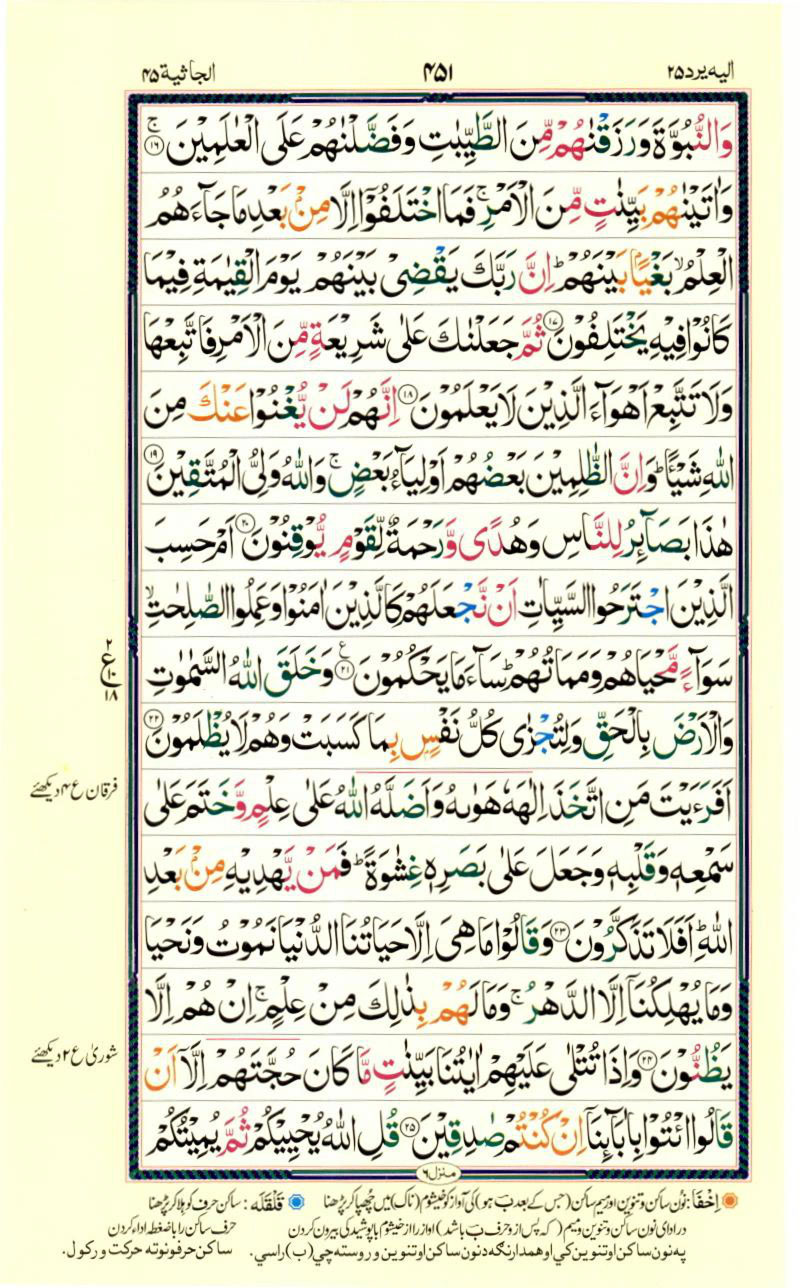 الیه یرد ۲۵
۴۵۱
الجاثیة ۴۵
وَالنُّبُوَّةَ وَرَزَقْنٰهُمْ مِّنَ الطَّيِّبٰتِ وَفَضَّلْنٰهُمْ عَلَى الْعٰلَمِيْنَ ۚ‏﴿۱۶﴾
وَاٰتَيْنٰهُمْ بَيِّنٰتٍ مِّنَ الْاَمْرِ ۚ فَمَا اخْتَلَفُوْۤا اِلَّا مِنْۢ بَعْدِ مَا جَآءَهُمُ
الْعِلْمُ ۙ بَغْيًۢا بَيْنَهُمْ ؕ اِنَّ رَبَّكَ يَقْضِىْ بَيْنَهُمْ يَوْمَ الْقِيٰمَةِ فِيْمَا
كَانُوْا فِيْهِ يَخْتَلِفُوْنَ ﴿۱۷﴾ ثُمَّ جَعَلْنٰكَ عَلٰى شَرِيْعَةٍ مِّنَ الْاَمْرِ فَاتَّبِعْهَا
وَلَا تَتَّبِعْ اَهْوَآءَ الَّذِيْنَ لَا يَعْلَمُوْنَ ﴿۱۸﴾ اِنَّهُمْ لَنْ يُّغْنُوْا عَنْكَ مِنَ
اللّٰهِ شَيْــًٔا ؕ وَاِنَّ الظّٰلِمِيْنَ بَعْضُهُمْ اَوْلِيَآءُ بَعْضٍ ۚ وَاللّٰهُ وَلِىُّ الْمُتَّقِيْنَ ﴿۱۹﴾
هٰذَا بَصَآئِرُ لِلنَّاسِ وَهُدًى وَّرَحْمَةٌ لِّقَوْمٍ يُّوْقِنُوْنَ ﴿۲۰﴾ اَمْ حَسِبَ
الَّذِيْنَ اجْتَرَحُوا السَّيِّاٰتِ اَنْ نَّجْعَلَهُمْ كَالَّذِيْنَ اٰمَنُوْا وَعَمِلُوا الصّٰلِحٰتِ ۙ
سَوَآءً مَّحْيَاهُمْ وَمَمَاتُهُمْ ؕ سَآءَ مَا يَحْكُمُوْنَ ﴿۲۱﴾ ع وَخَلَقَ اللّٰهُ السَّمٰوٰتِ
۲
ع
۱۰
۱۸
وَالْاَرْضَ بِالْحَقِّ وَلِتُجْزٰى كُلُّ نَفْسٍۢ بِمَا كَسَبَتْ وَهُمْ لَا يُظْلَمُوْنَ ﴿۲۲﴾
اَفَرَءَيْتَ مَنِ اتَّخَذَ اِلٰهَهٗ هَوٰىهُ وَاَضَلَّهُ اللّٰهُ عَلٰى عِلْمٍ وَّخَتَمَ عَلٰى
فرقان ع ۴ دیکھئے
سَمْعِهٖ وَقَلْبِهٖ وَجَعَلَ عَلٰى بَصَرِهٖ غِشٰوَةً ؕ فَمَنْ يَّهْدِيْهِ مِنْۢ بَعْدِ
اللّٰهِ ؕ اَفَلَا تَذَكَّرُوْنَ ﴿۲۳﴾ وَقَالُوْا مَا هِىَ اِلَّا حَيَاتُنَا الدُّنْيَا نَمُوْتُ وَنَحْيَا
وَمَا يُهْلِكُنَاۤ اِلَّا الدَّهْرُ ۚ وَمَا لَهُمْ بِذٰلِكَ مِنْ عِلْمٍ ۚ اِنْ هُمْ اِلَّا
يَظُنُّوْنَ ﴿۲۴﴾ وَاِذَا تُتْلٰى عَلَيْهِمْ اٰيٰتُنَا بَيِّنٰتٍ مَّا كَانَ حُجَّتَهُمْ اِلَّاۤ اَنْ
شوریٰ ع ۲ دیکھئے
قَالُوا ائْتُوْا بِاٰبَآئِنَاۤ اِنْ كُنْتُمْ صٰدِقِيْنَ ﴿۲۵﴾ قُلِ اللّٰهُ يُحْيِيْكُمْ ثُمَّ يُمِيْتُكُمْ
منزل ۶
اِخفَا: نون ساکن و تنوین اور میم ساکن (جس کے بعد بَ ہو) کی آواز کو خیشوم (ناک) میں چھپا کر پڑھنا قَلْقَلَه: ساکن حرف کو ہلا کر پڑھنا
در ادای نون ساکن و تنوین و میم (که پس از و حرف بَ باشد) او از را از خیشوم با پوشیدگی بیرون کردن حرف ساکن را با ضغطه ادا کردن
په نون ساکن او تنوین کي او همدارنګه د نون ساکن او تنوین و روسته چي (ب) راسي. ساکن حرفونو ته حرکت ورکول.